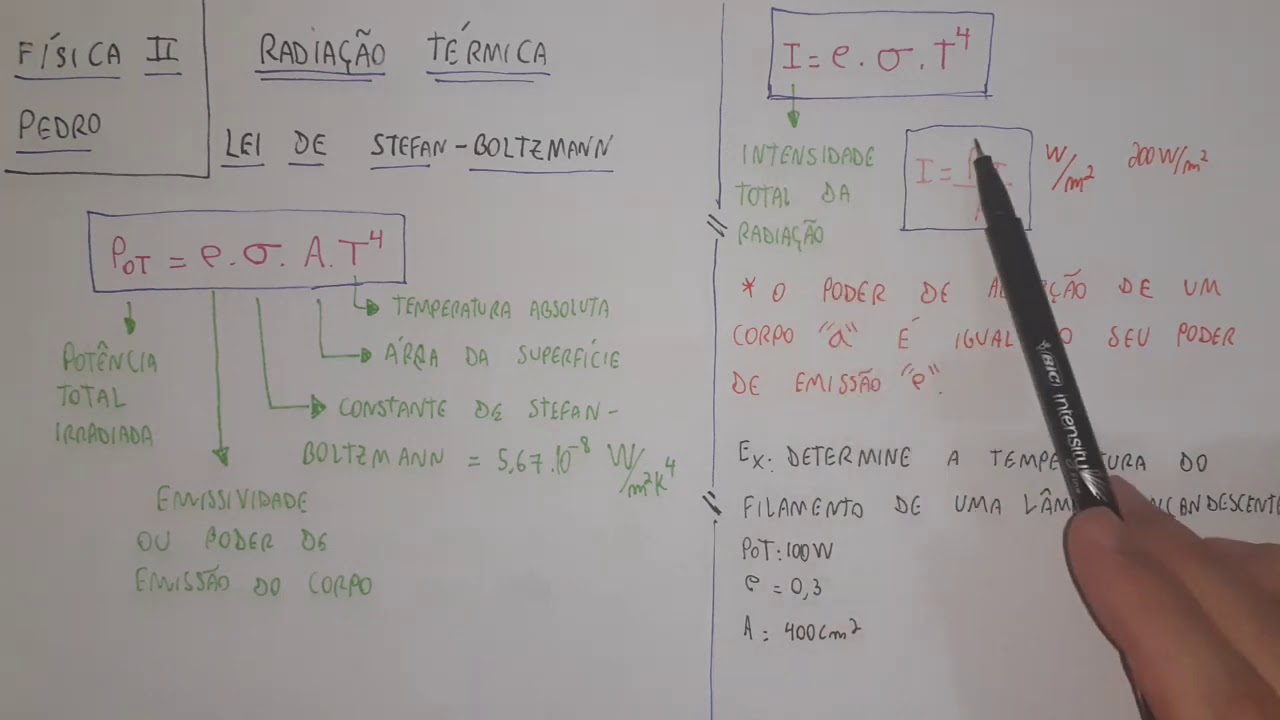 FÍSICA II
PEDRO
RADIAÇÃO TÉRMICA
LEI DE STEFAN-BOLTZMANN
POT = e.σ.A.T⁴
POTÊNCIA
TOTAL
IRRADIADA
TEMPERATURA ABSOLUTA
ÁREA DA SUPERFÍCIE
CONSTANTE DE STEFAN-
BOLTZMANN = 5,67.10⁻⁸ W/m²K⁴
EMISSIVIDADE
OU PODER DE
EMISSÃO DO CORPO
I = e.σ.T⁴
INTENSIDADE
TOTAL DA
RADIAÇÃO
I =
W/m² 200W/m²
* O PODER DE DE UM
CORPO "a" É IGUAL SEU PODER
DE EMISSÃO "e".
EX: DETERMINE A TEMPERATURA DO
FILAMENTO DE UMA
POT: 100W
e = 0,3
A = 400cm²
BIC intensity